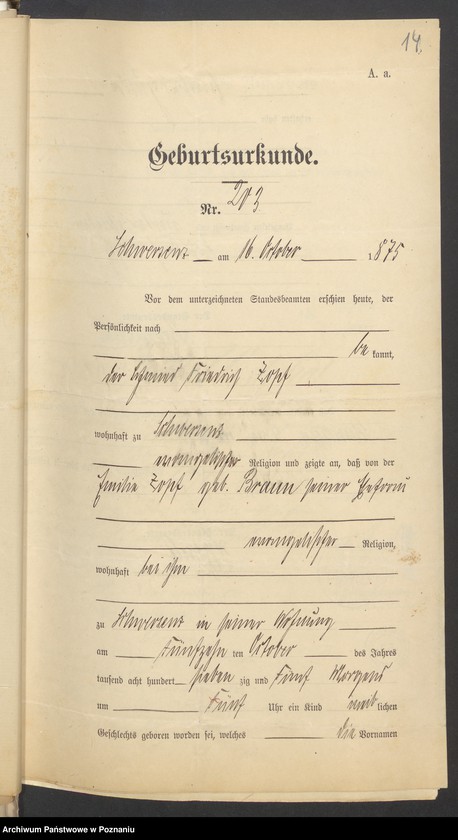 14.
A. a.
Geburtsurkunde.
Nr. 203.
Schwersenz am 16. October 1875
Vor dem unterzeichneten Standesbeamten erschien heute, der
Persönlichkeit nach
be kannt,
der Schmied Friedrich Zopf
wohnhaft zu Schwersenz
evangelischer Religion und zeigte an, daß von der
Emilie Zopf geb. Braun seiner Ehefrau
evangelischer Religion,
wohnhaft bei ihm
zu Schwersenz in seiner Wohnung
am fünfzehn ten October des Jahres
tausend acht hundert sieben zig und fünf Morgens
um fünf Uhr ein Kind weib lichen
Geschlechts geboren worden sei, welches die Vornamen
Archiwum Państwowe w Poznaniu